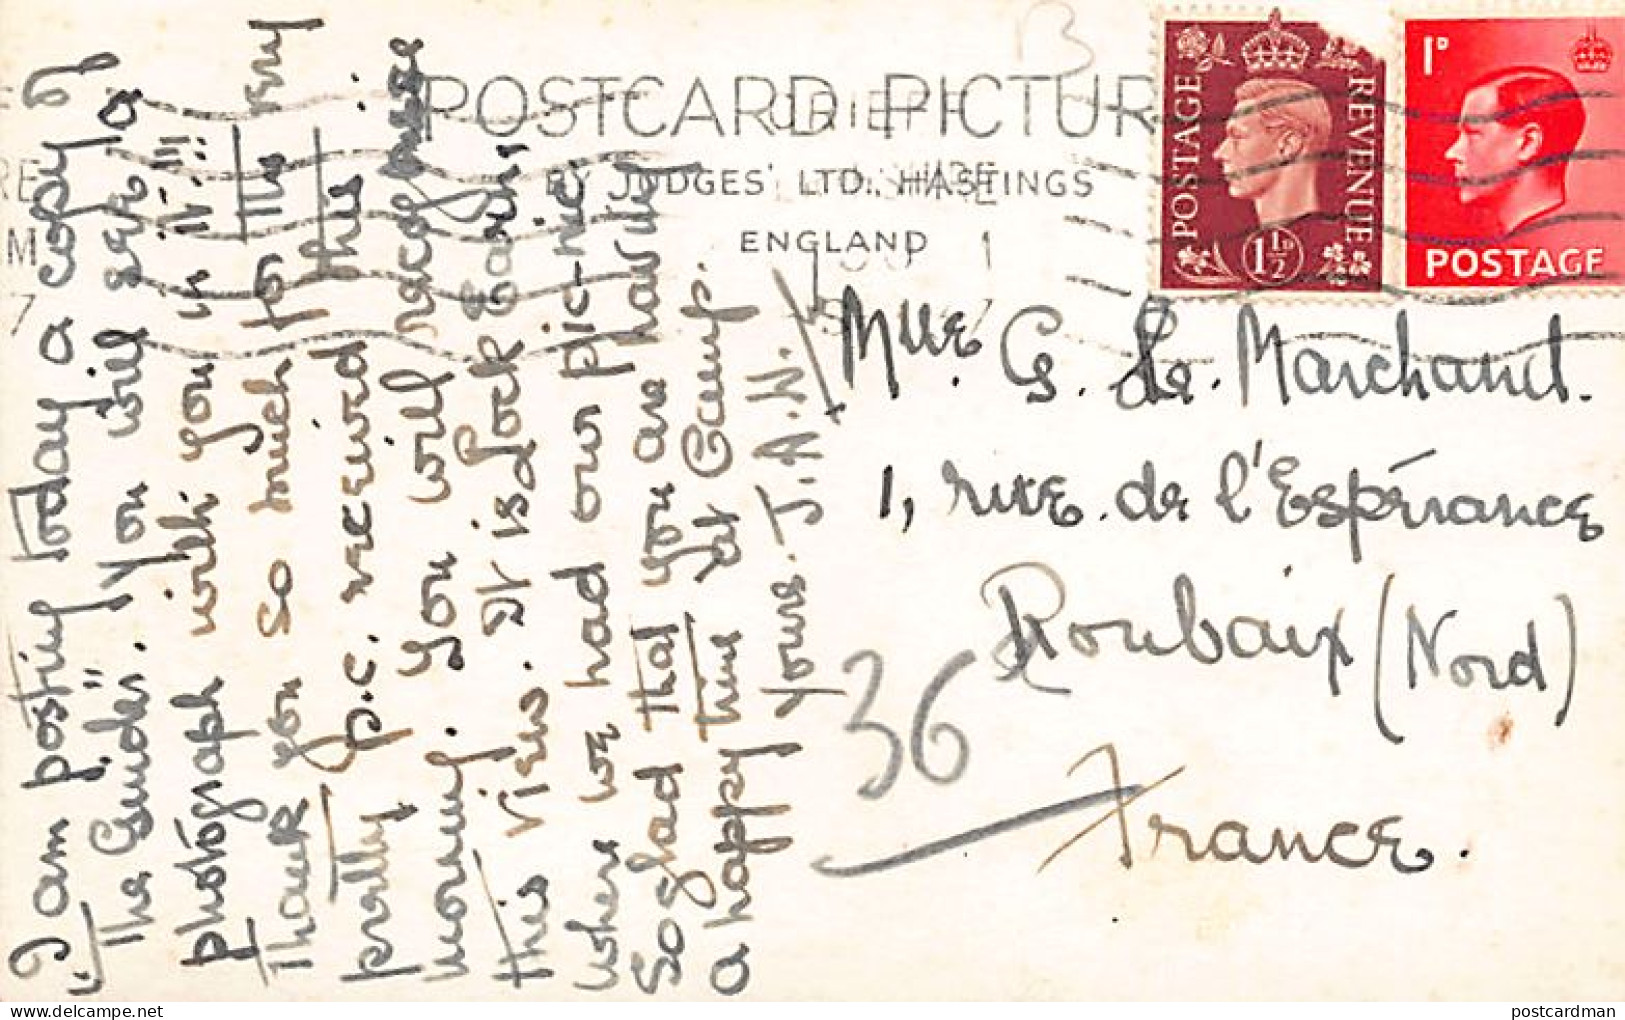 I am posting today a copy of
"The Guider". You will see a
photograph with you in it!!!
Thank you so much for the very
pretty p.c. received this
morning. You will recognise
this view. It is Lock Eashi
where we had our pic-nic
So glad that you are having
a happy time at Camp.
Yours. J.A.W.
POSTCARD PICTUR
BY JUDGES' LTD., HASTINGS
ENGLAND
B
POSTAGE
REVENUE
1½D
1D
POSTAGE
Mlle. G. Le. Marchand.
1, rue de l'Espérance
Roubaix (Nord)
France.
36
postcardman